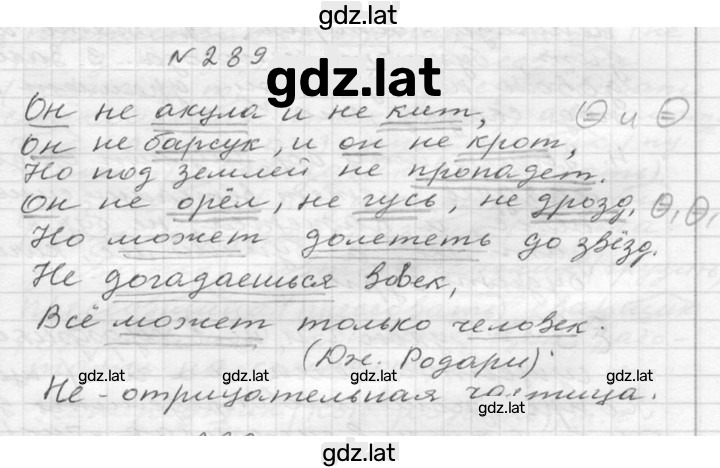 gdz.lat
№ 289
gdz.lat
Он не акула и не кит, ⊖ и ⊖
Он не барсук, и он не крот,
Но под землей не пропадет.
Он не орёл, не гусь, не дрозд, ⊖, ⊖,
Но может долететь до звёзд.
Не догадаешься вовек,
Всё может только человек.
(Дж. Родари)
gdz.lat gdz.lat gdz.lat
Не - отрицательная частица.
gdz.lat
gdz.lat